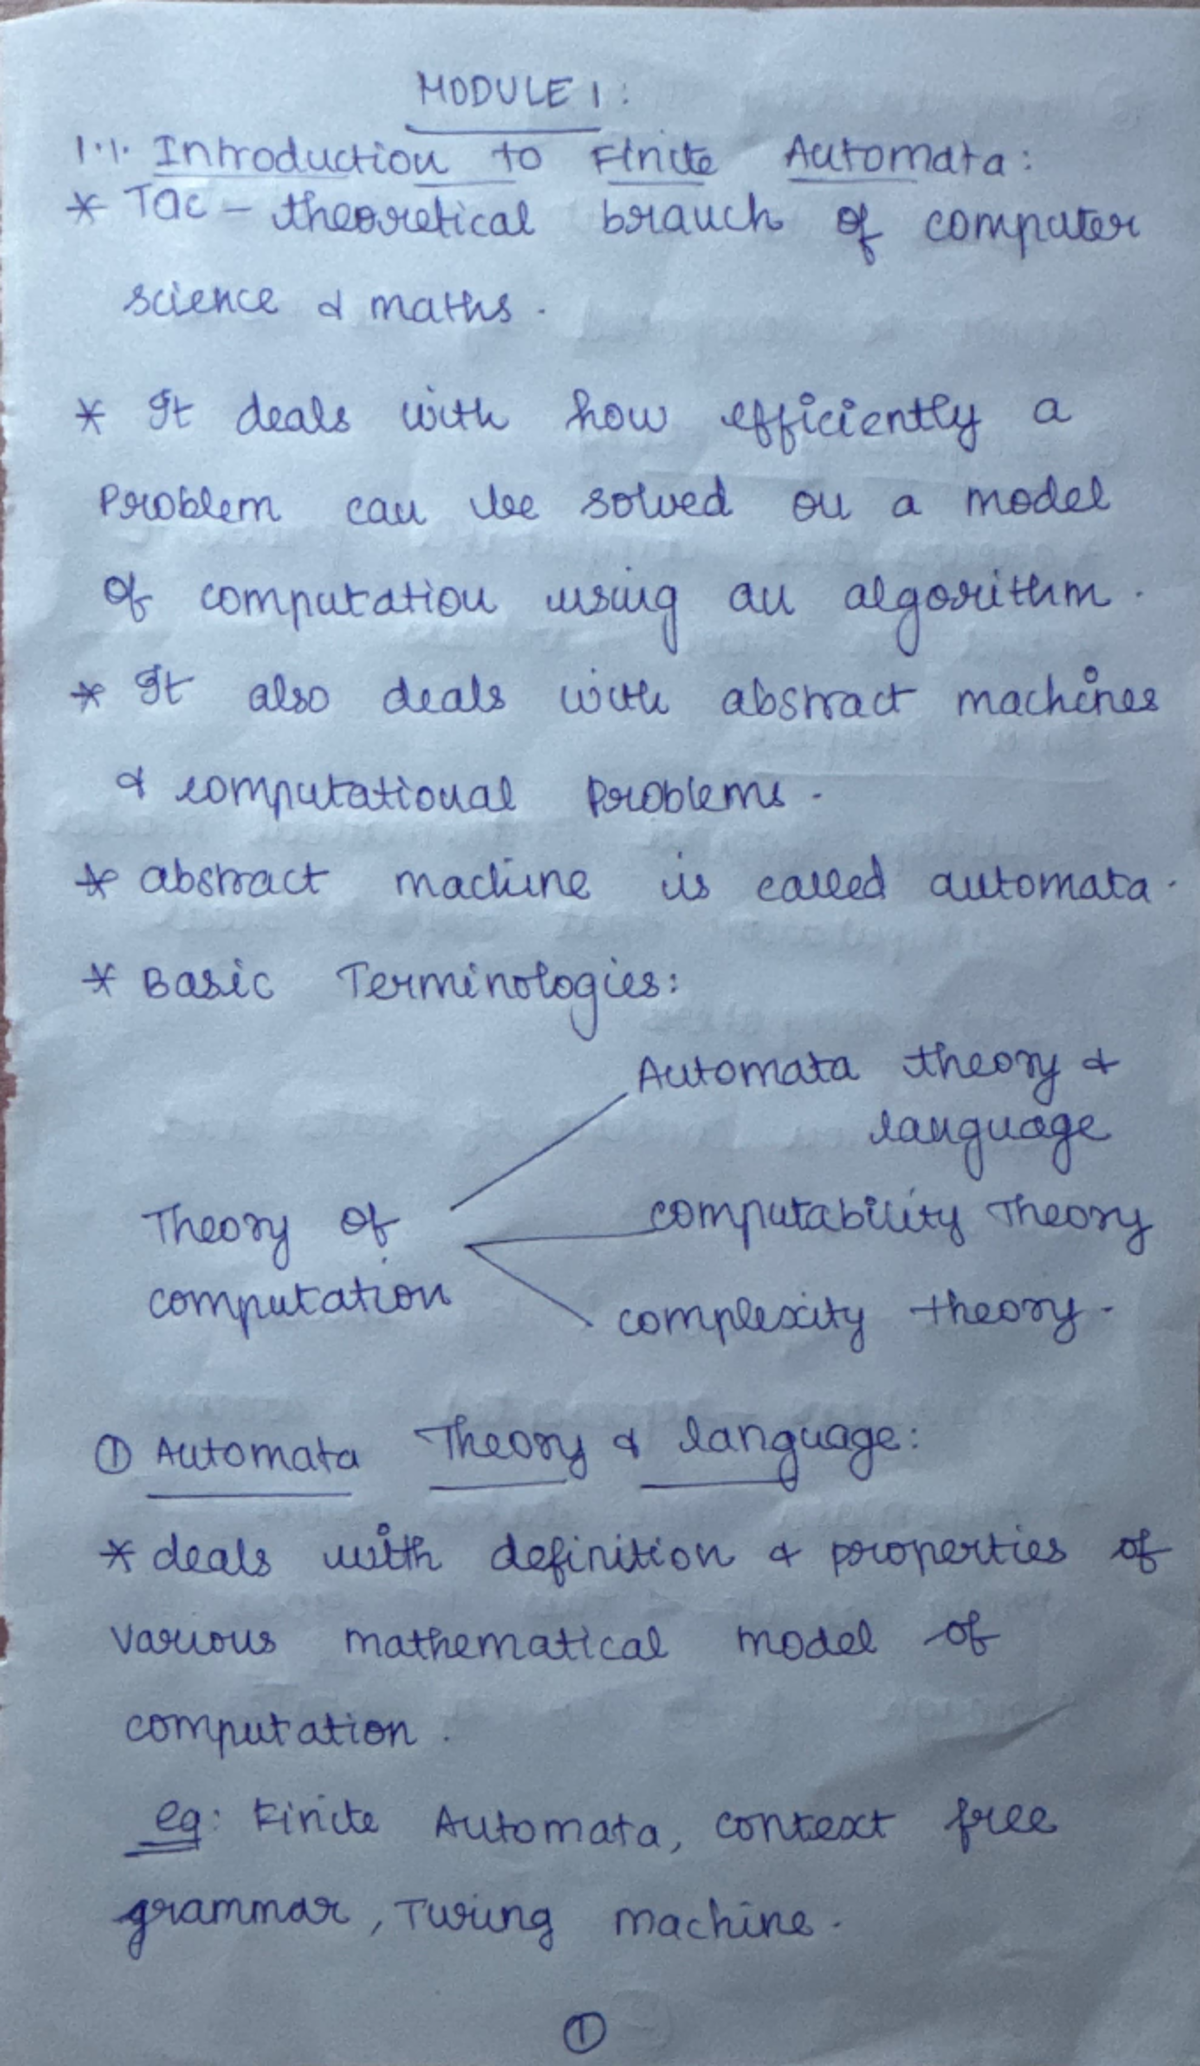 MODULE 1:
1.1. Introduction to Finite Automata:
* TOC - theoretical branch of computer
science & maths.
* It deals with how efficiently a
Problem can be solved on a model
of computation using an algorithm.
* It also deals with abstract machines
& computational Problems.
* abstract machine is called automata.
* Basic Terminologies:
Automata theory &
language
Theory of
computation
computability Theory
complexity theory.
① Automata Theory & language:
* deals with definition & properties of
various mathematical model of
computation.
eg: Finite Automata, context free
grammar, Turing machine.
①